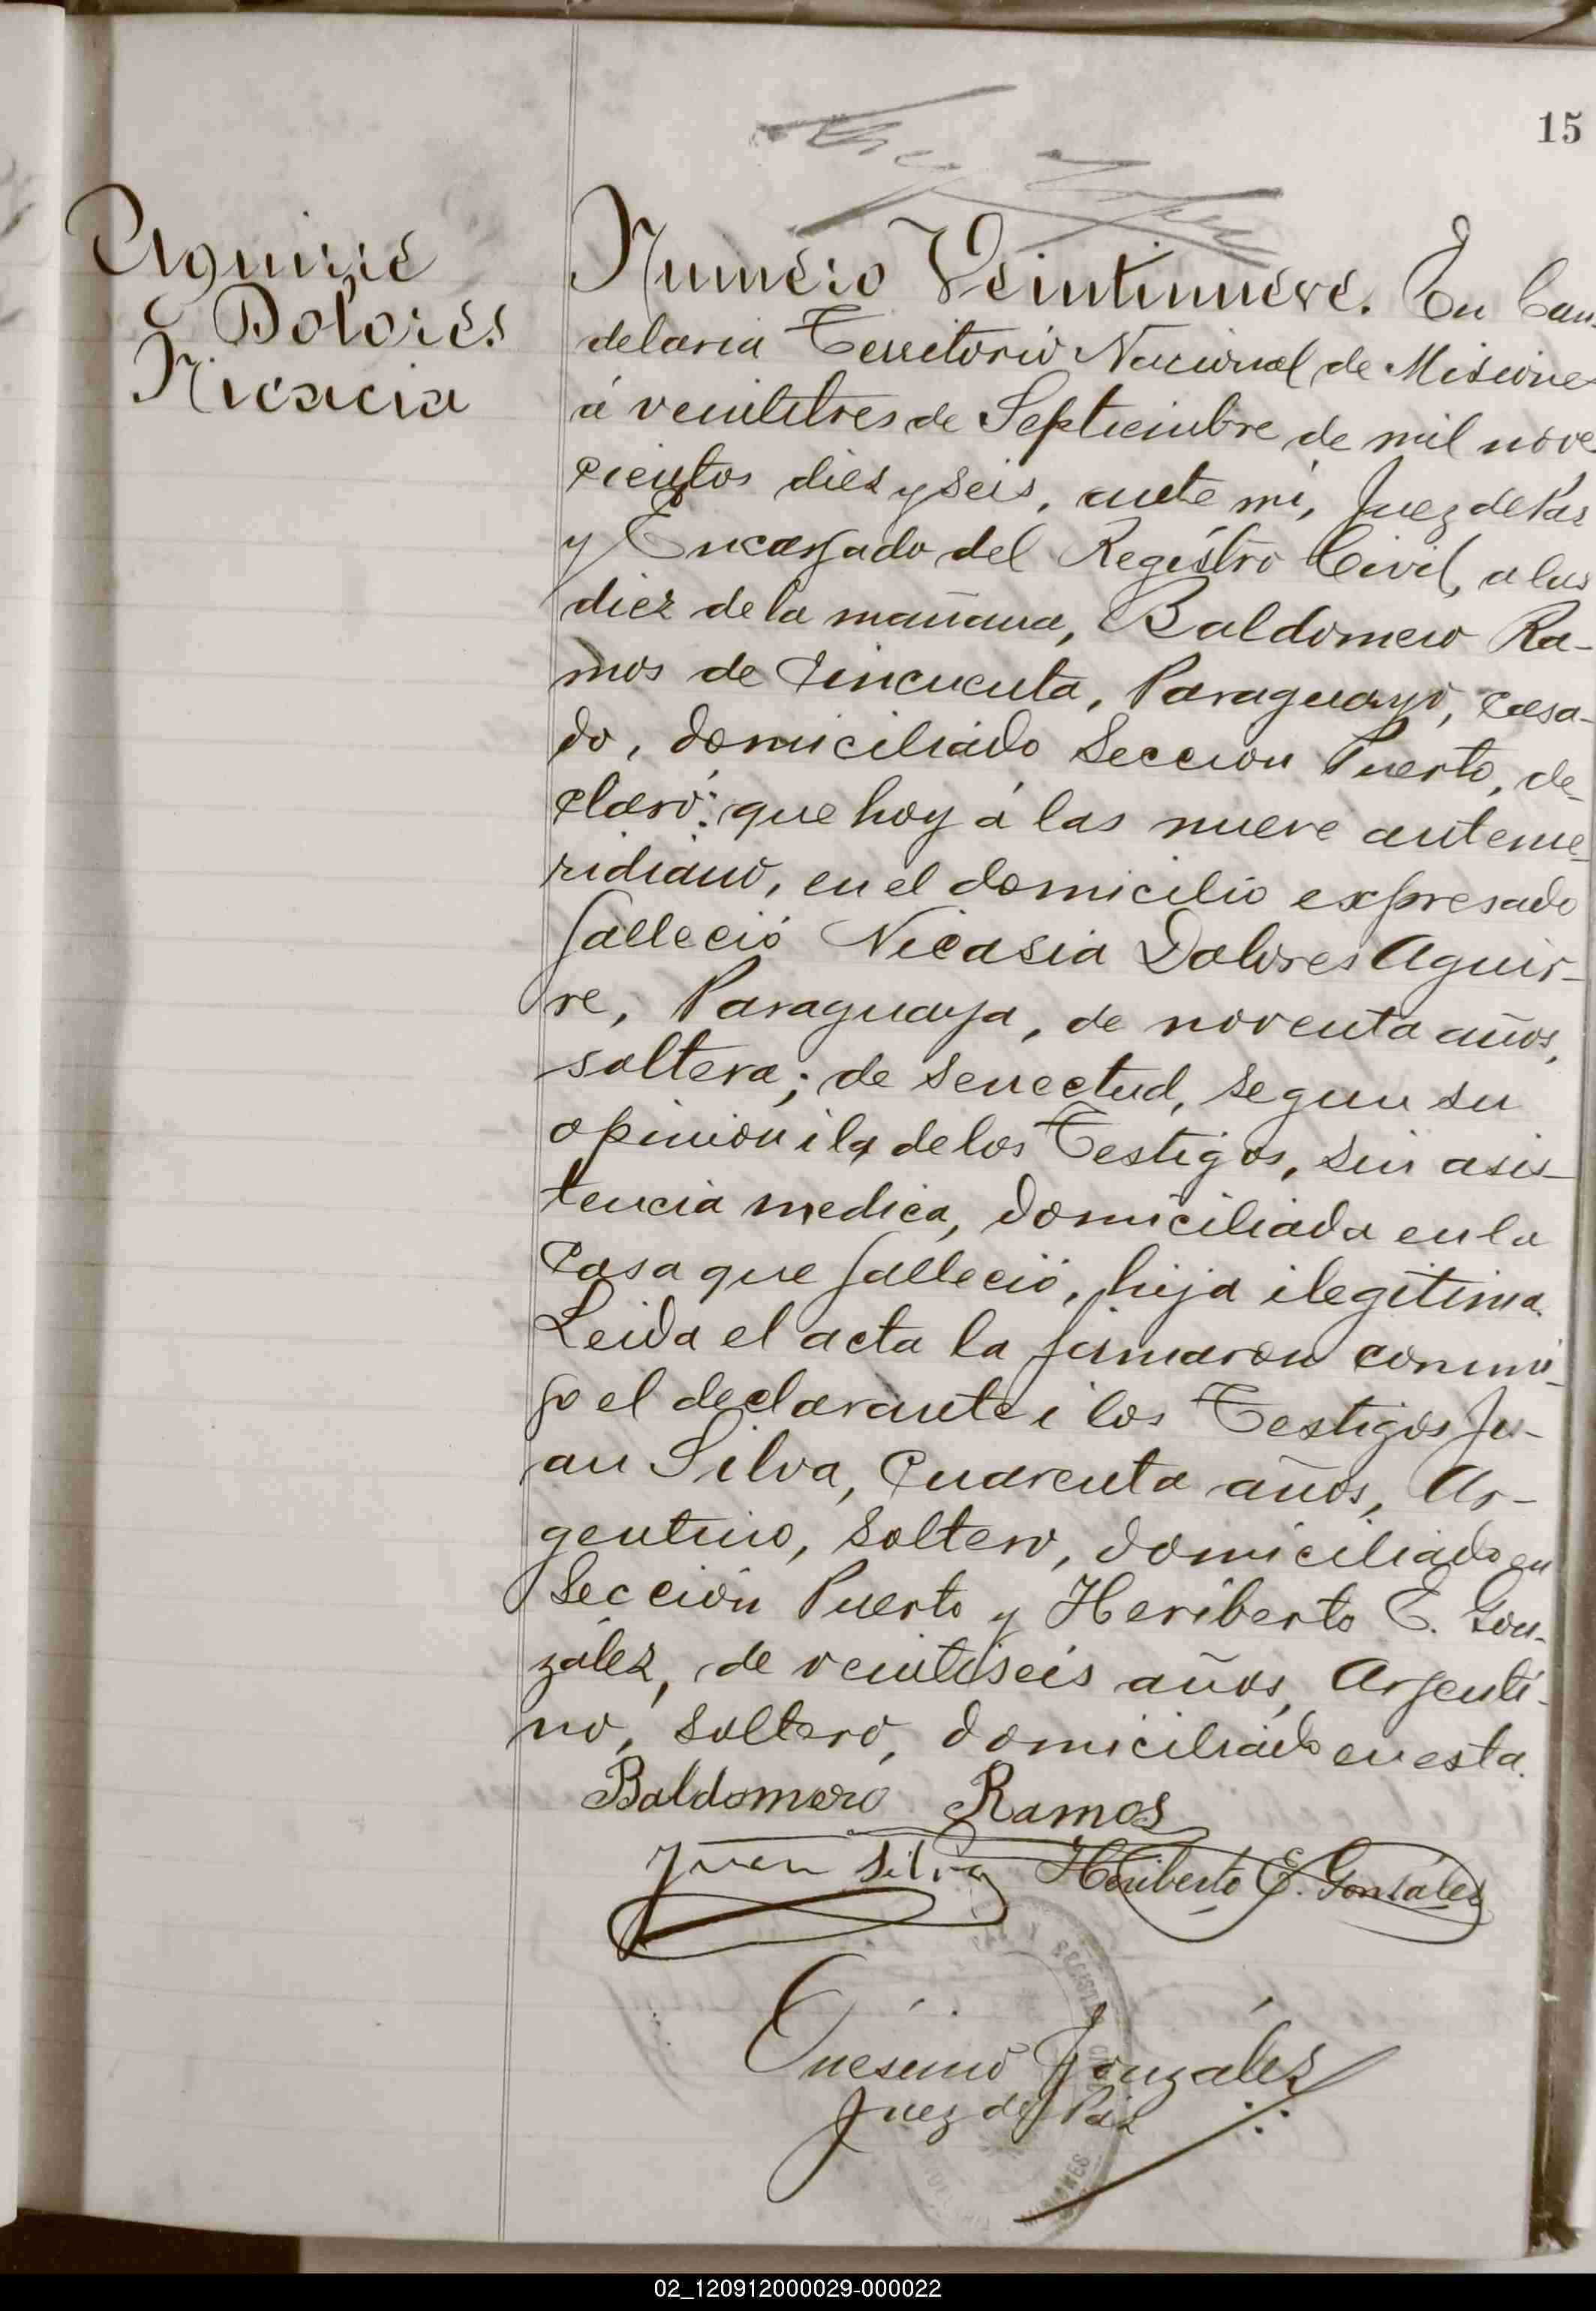 15
Aguirre
Dolores
Nicacia
Numero Veintinueve. En Can
delaria Territorio Nacional de Misiones
á veintitres de Septiembre de mil nove
cientos diez y seis, ante mi, Juez de Pas
y Encargado del Registro Civil, a las
diez de la mañana, Baldomero Ra-
mos de Cincuenta, Paraguayo, casa-
do, domiciliado Seccion Puerto, de-
claró: que hoy á las nueve anteme-
ridiano, en el domicilio expresado
falleció Nicasia Dolores Aguir-
re, Paraguaya, de noventa años,
soltera; de senectud, segun su
opinion i la de los Testigos, sin asis-
tencia medica, domiciliada en la
Casa que falleció, hija ilegitima.
Leida el acta la firmaron conmi-
go el declarante i los Testigos Ju-
an Silva, Cuarenta años, Ar-
gentino, Soltero, domiciliado en
Sección Puerto y Heriberto E. Gon-
zález, de veintiseis años, Argenti-
no, soltero, domiciliado en esta.
Baldomero Ramos
Juan Silva Heriberto E. González
Onésimo González
Juez de Paz
02_120912000029-000022